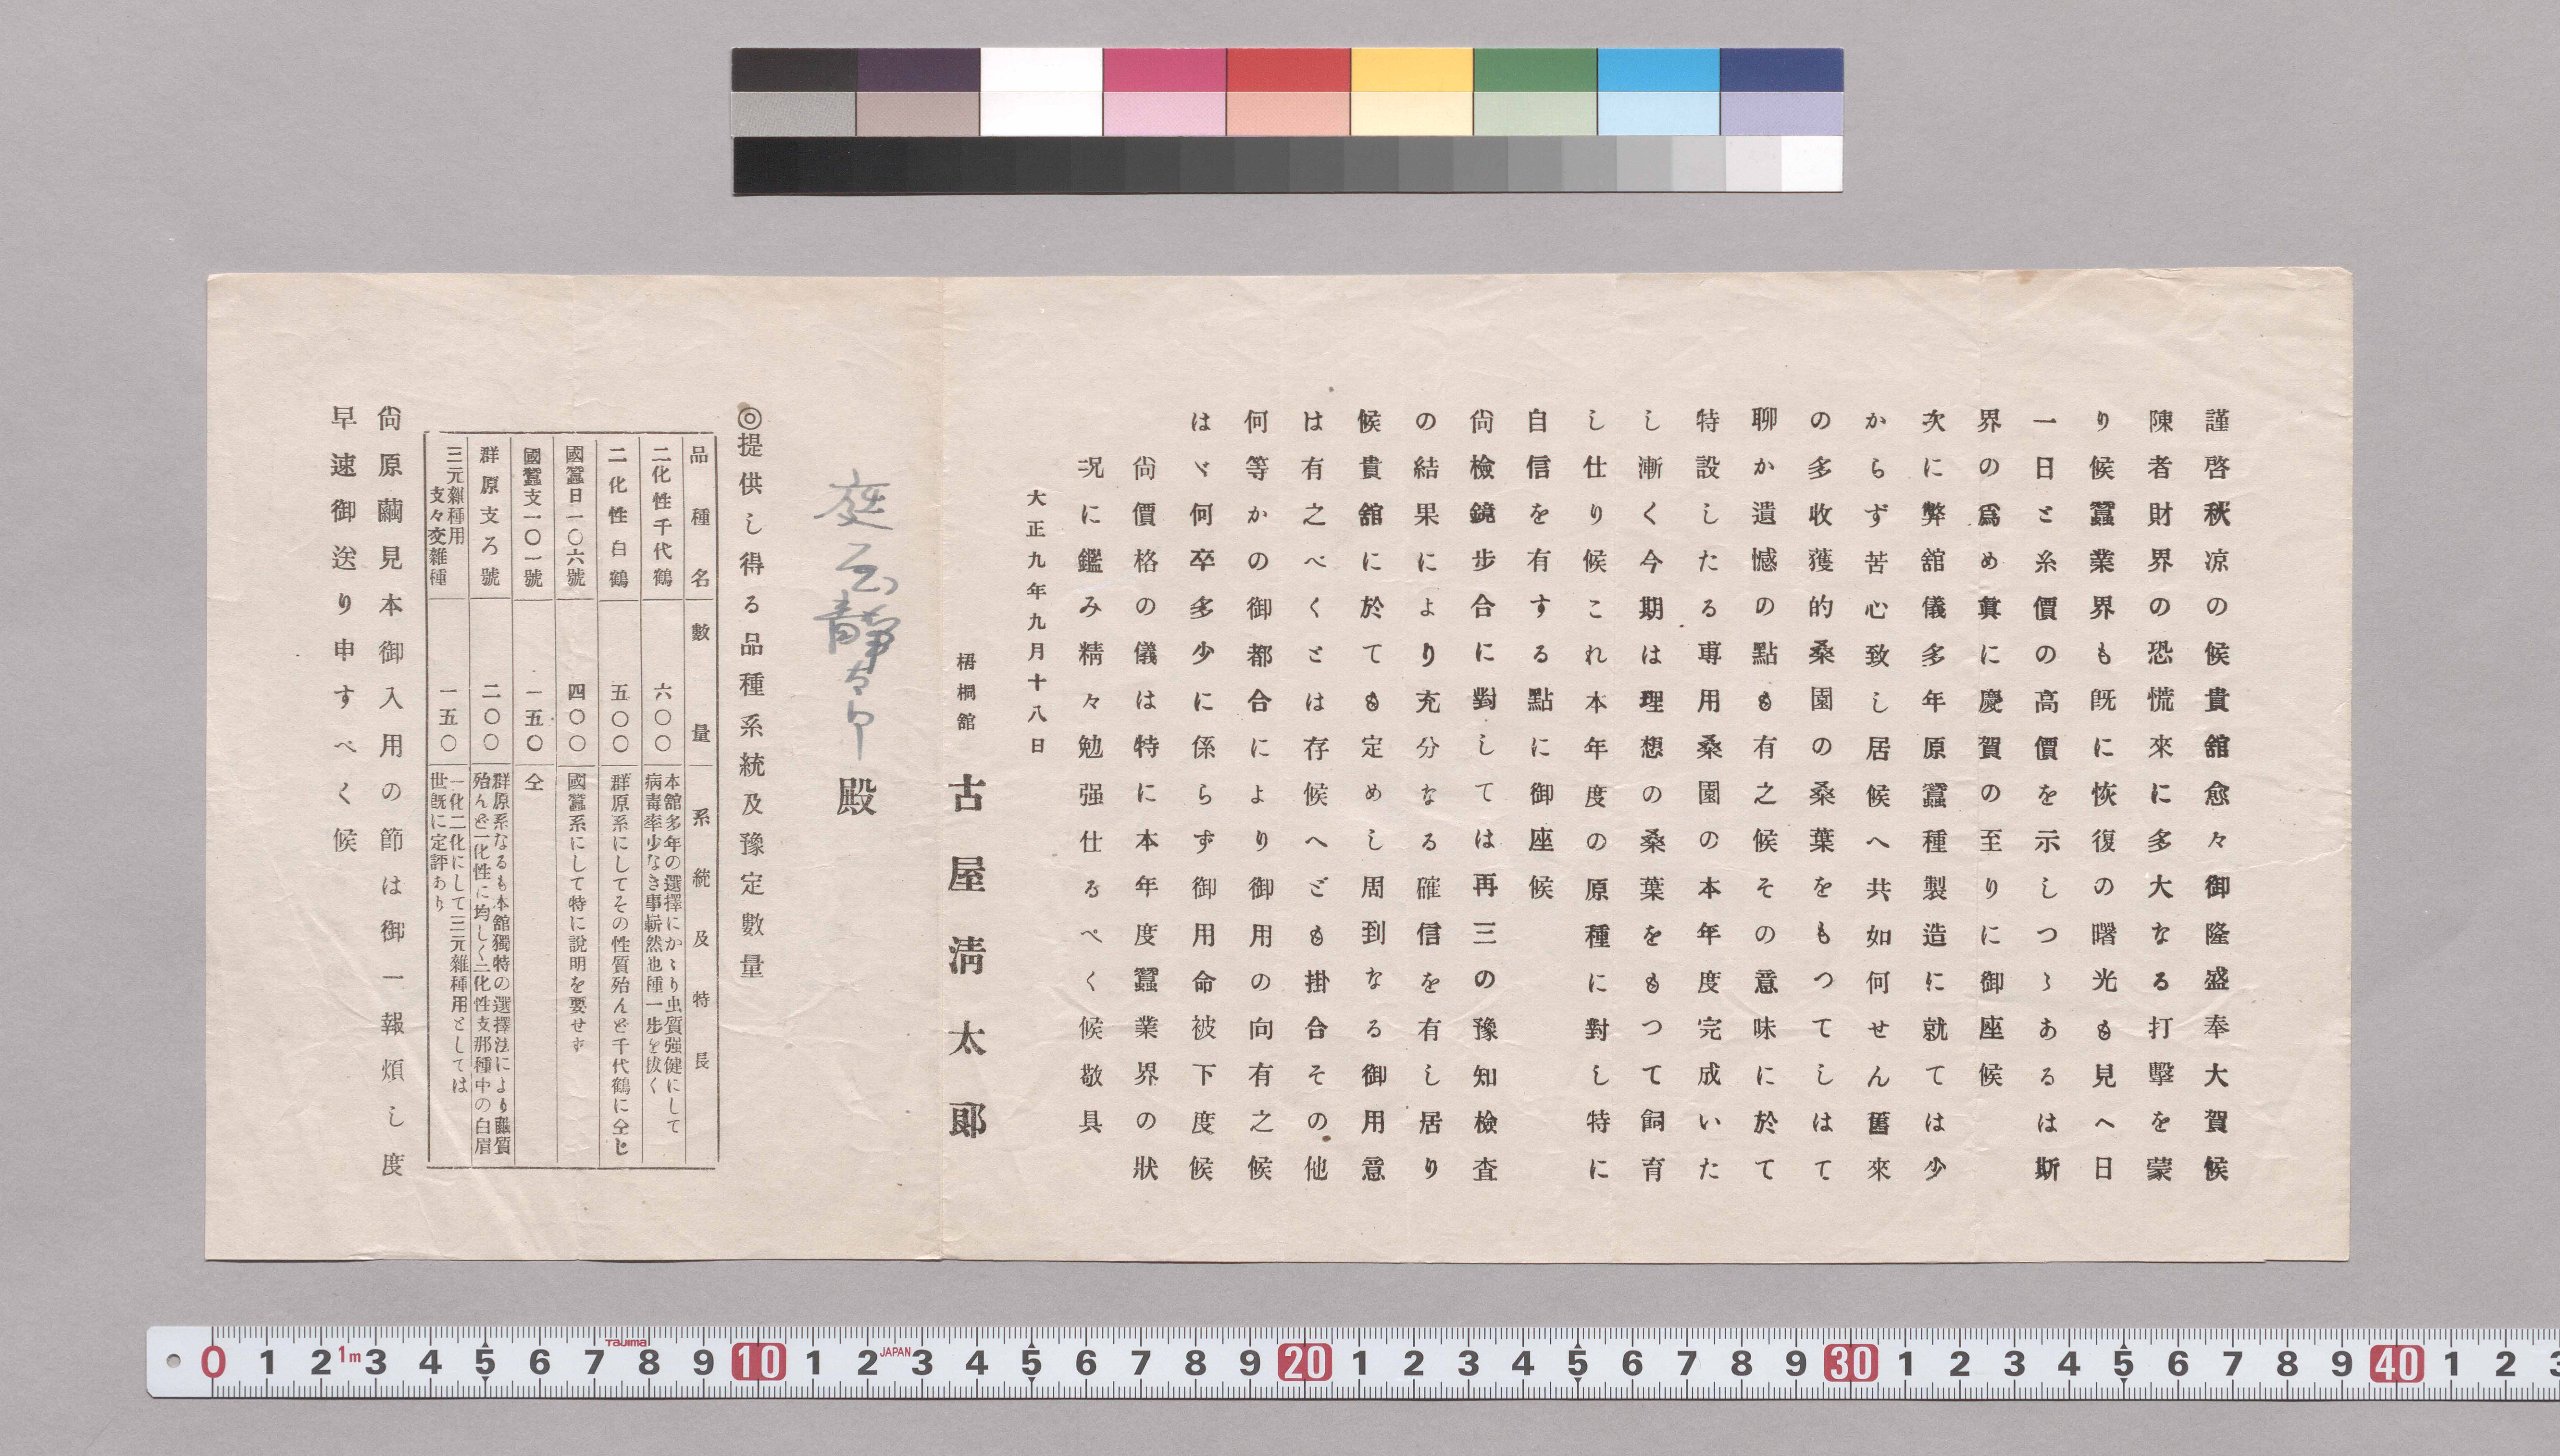 謹啓秋凉の候貴舘愈々御隆盛奉大賀候
陳者財界の恐慌來に多大なる打擊を蒙
り候蠶業界も既に恢復の曙光も見へ日
一日と糸價の高價を示しつゝあるは斯
界の爲め眞に慶賀の至りに御座候
次に弊舘儀多年原蠶種製造に就ては少
からず苦心致し居候へ共如何せん舊來
の多收獲的桑園の桑葉をもつてしはて
聊か遺憾の點も有之候その意味に於て
特設したる專用桑園の本年度完成いた
し漸く今期は理想の桑葉をもつて飼育
し仕り候これ本年度の原種に對し特に
自信を有する點に御座候
尙檢鏡步合に對しては再三の豫知檢査
の結果により充分なる確信を有し居り
候貴舘に於ても定めし周到なる御用意
は有之べくとは存候へども掛合その他
何等かの御都合により御用の向有之候
はゞ何卒多少に係らず御用命被下度候
尙價格の儀は特に本年度蠶業界の狀
況に鑑み精々勉强仕るべく候敬具
大正九年九月十八日
梧桐舘
古屋淸太郞
殿
◎提供し得る品種系統及豫定數量
品種名 數量 系統及特長
二化性千代鶴 六〇〇 本舘多年の選擇にかゝり虫質强健にして
病毒率少なき事嶄然他種一步を拔く
二化性白鶴 五〇〇 群原系にしてその性質殆んど千代鶴に仝じ
國蠶日一〇六號 四〇〇 國蠶系にして特に說明を要せず
國蠶支一〇一號 一五〇 仝
群原支ろ號 二〇〇 群原系なるも本舘獨特の選擇法により蠶質
殆んど一化性に均しく二化性支那種中の白眉
三元雜種用
支々交雜種 一五〇 一化二化にして三元雜種用としては
世既に定評あり
尙原繭見本御入用の節は御一報煩し度
早速御送り申すべく候